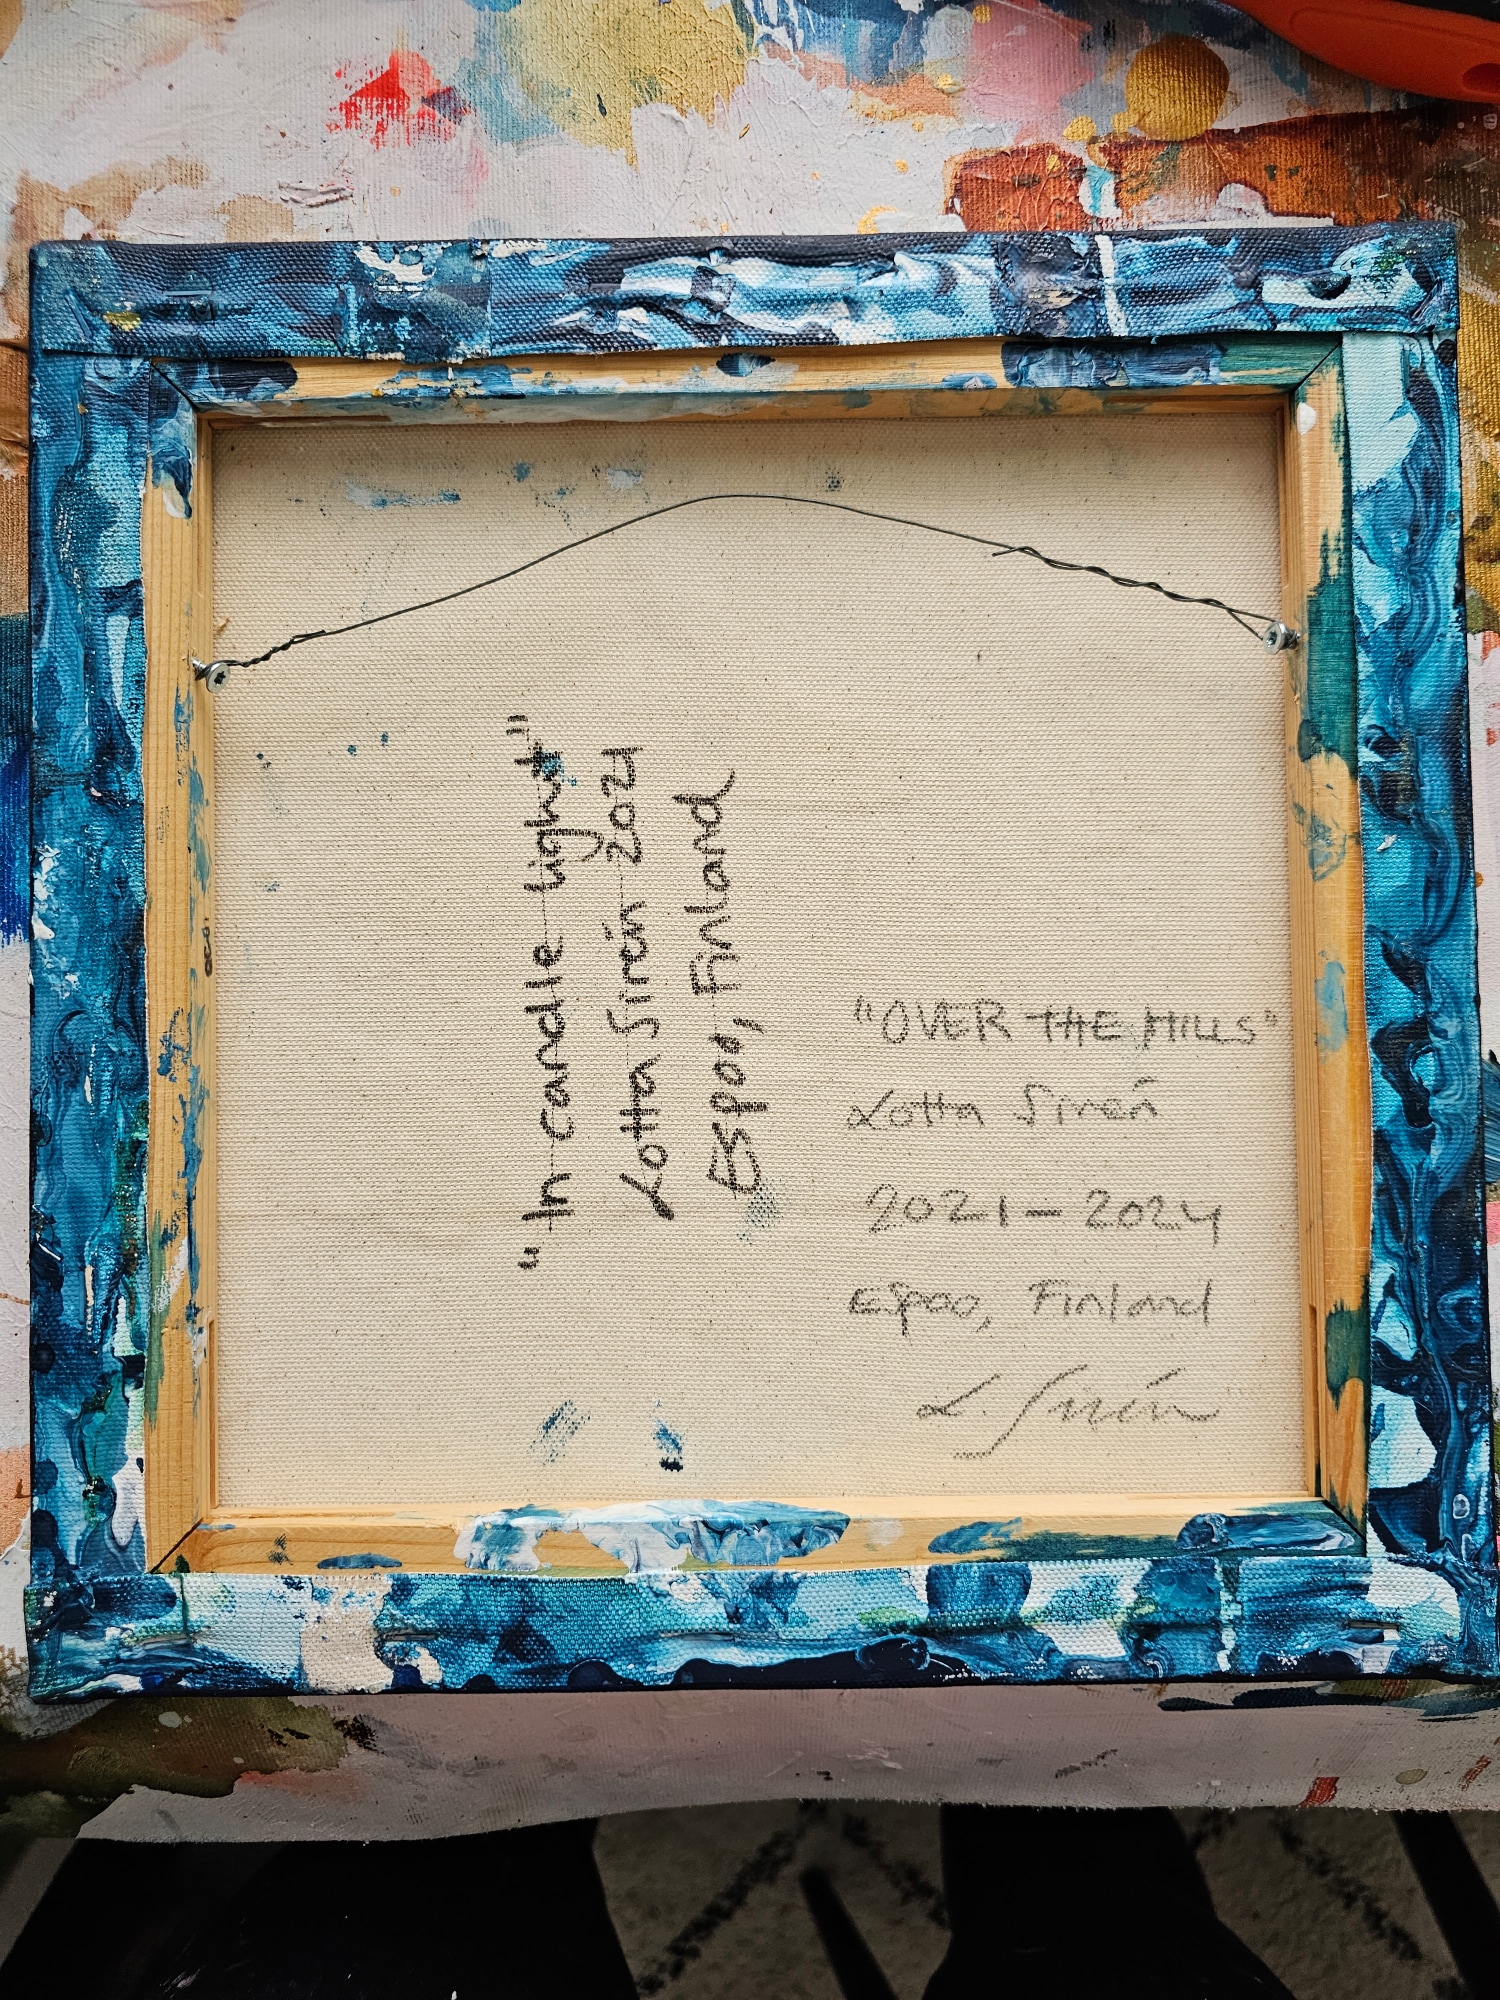 "In candle light"
Lotta Sirén 2021
Espoo, Finland
"OVER THE HILLS"
Lotta Sirén
2021-2024
Espoo, Finland
L Sirén